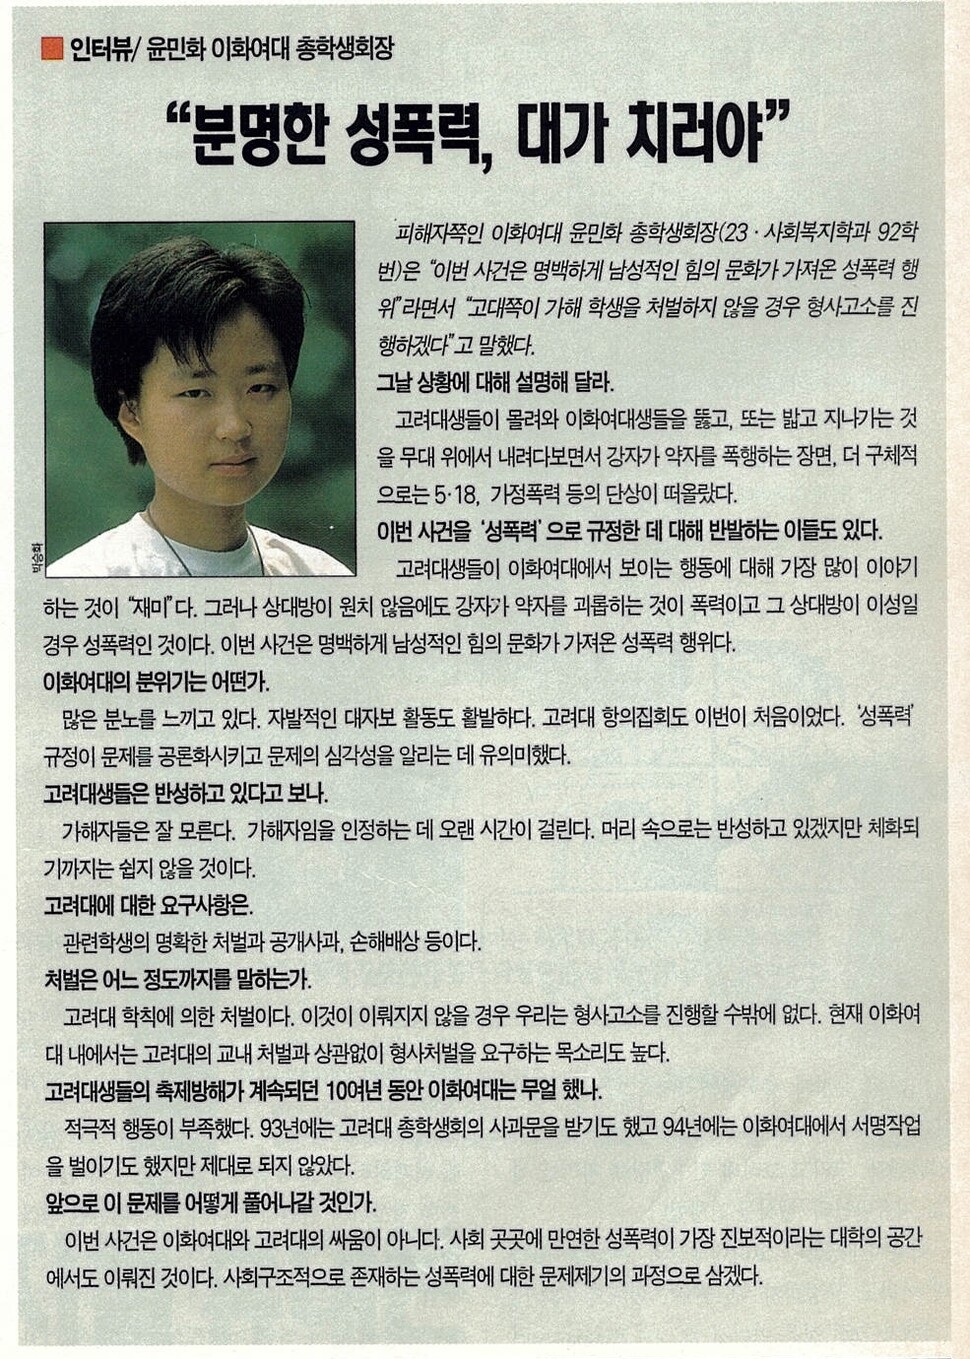 인터뷰/ 윤민화 이화여대 총학생회장
“분명한 성폭력, 대가 치러야”
피해자쪽인 이화여대 윤민화 총학생회장(23 · 사회복지학과 92학
번)은 “이번 사건은 명백하게 남성적인 힘의 문화가 가져온 성폭력 행
위”라면서 “고대쪽이 가해 학생을 처벌하지 않을 경우 형사고소를 진
행하겠다”고 말했다.
그날 상황에 대해 설명해 달라.
고려대생들이 몰려와 이화여대생들을 뚫고, 또는 밟고 지나가는 것
을 무대 위에서 내려다보면서 강자가 약자를 폭행하는 장면, 더 구체적
으로는 5·18, 가정폭력 등의 단상이 떠올랐다.
이번 사건을 ‘성폭력’으로 규정한 데 대해 반발하는 이들도 있다.
박승화
고려대생들이 이화여대에서 보이는 행동에 대해 가장 많이 이야기
하는 것이 “재미”다. 그러나 상대방이 원치 않음에도 강자가 약자를 괴롭히는 것이 폭력이고 그 상대방이 이성일
경우 성폭력인 것이다. 이번 사건은 명백하게 남성적인 힘의 문화가 가져온 성폭력 행위다.
이화여대의 분위기는 어떤가.
많은 분노를 느끼고 있다. 자발적인 대자보 활동도 활발하다. 고려대 항의집회도 이번이 처음이었다. ‘성폭력’
규정이 문제를 공론화시키고 문제의 심각성을 알리는 데 유의미했다.
고려대생들은 반성하고 있다고 보나.
가해자들은 잘 모른다. 가해자임을 인정하는 데 오랜 시간이 걸린다. 머리 속으로는 반성하고 있겠지만 체화되
기까지는 쉽지 않을 것이다.
고려대에 대한 요구사항은.
관련학생의 명확한 처벌과 공개사과, 손해배상 등이다.
처벌은 어느 정도까지를 말하는가.
고려대 학칙에 의한 처벌이다. 이것이 이뤄지지 않을 경우 우리는 형사고소를 진행할 수밖에 없다. 현재 이화여
대 내에서는 고려대의 교내 처벌과 상관없이 형사처벌을 요구하는 목소리도 높다.
고려대생들의 축제방해가 계속되던 10여년 동안 이화여대는 무얼 했나.
적극적 행동이 부족했다. 93년에는 고려대 총학생회의 사과문을 받기도 했고 94년에는 이화여대에서 서명작업
을 벌이기도 했지만 제대로 되지 않았다.
앞으로 이 문제를 어떻게 풀어나갈 것인가.
이번 사건은 이화여대와 고려대의 싸움이 아니다. 사회 곳곳에 만연한 성폭력이 가장 진보적이라는 대학의 공간
에서도 이뤄진 것이다. 사회구조적으로 존재하는 성폭력에 대한 문제제기의 과정으로 삼겠다.